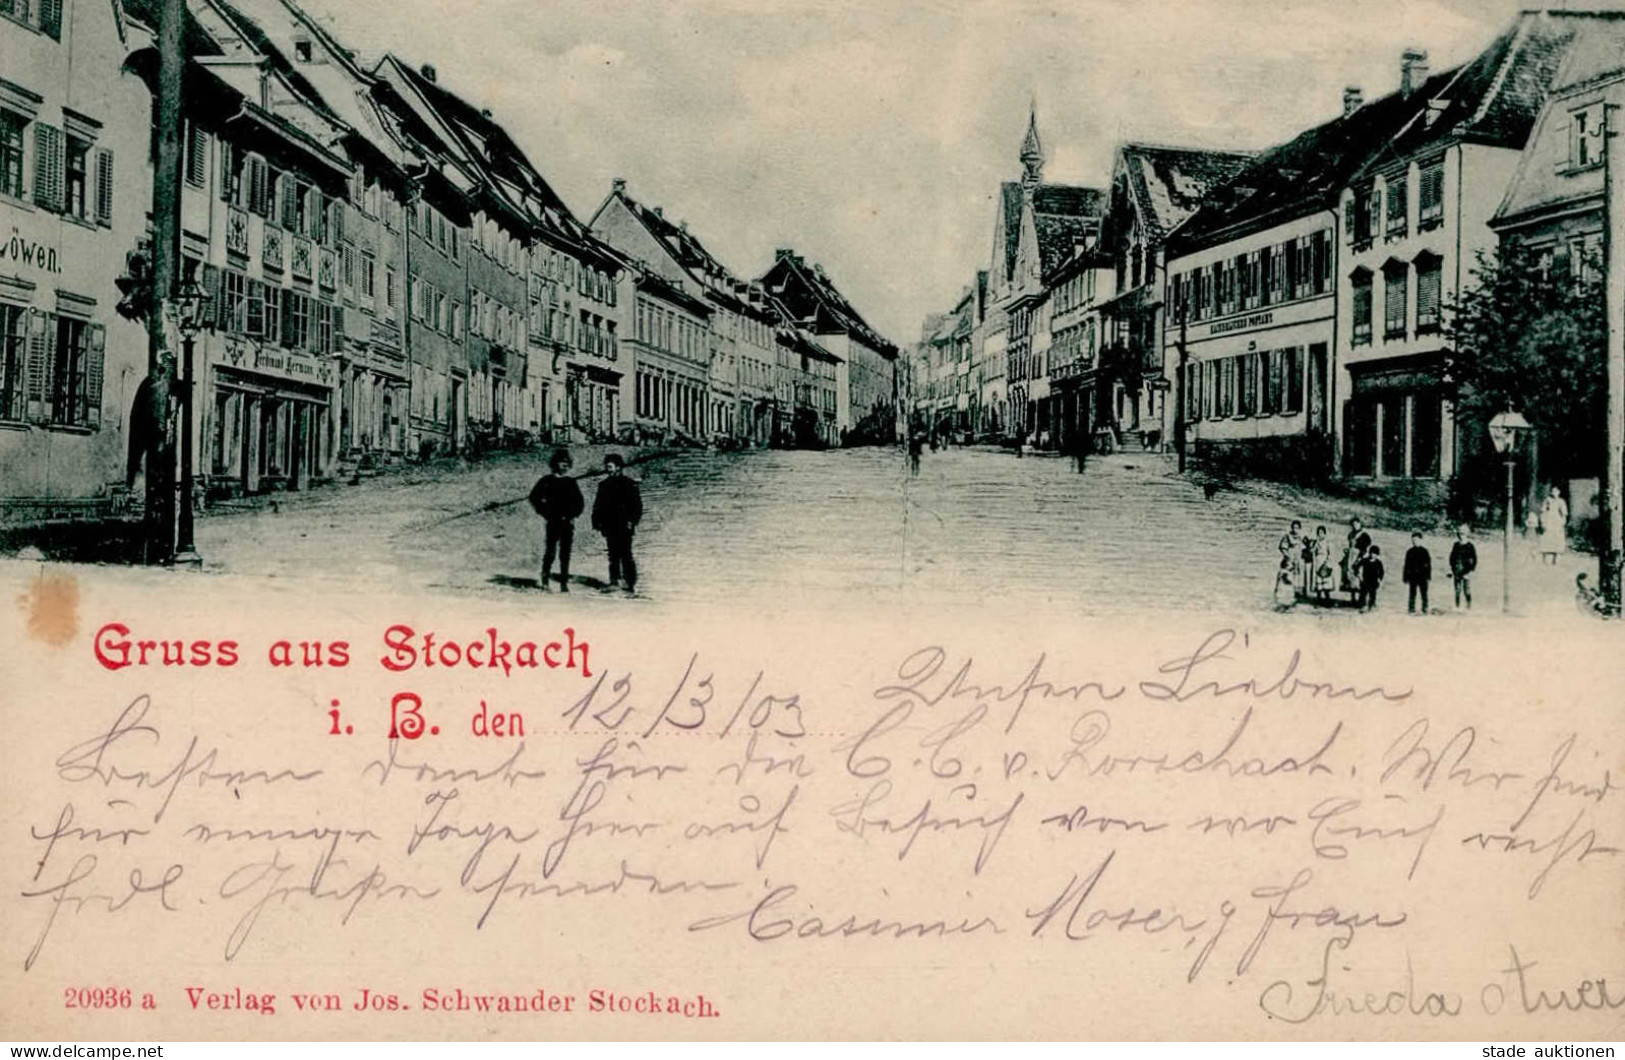 Löwen.
Ferdinand Hermann
KAISERLICHES POSTAMT
Gruss aus Stockach
i. B. den 12/3/03
Unsern Lieben
Besten Dank für die C. C. v. Rorschach. Wir sind
für einige Tage hier auf Besuch von wo Euch recht
frdl. Grüße senden
Casimir Moser, & Frau
Frieda Auer
20936 a Verlag von Jos. Schwander Stockach.
www.delcampe.net
stade auktionen